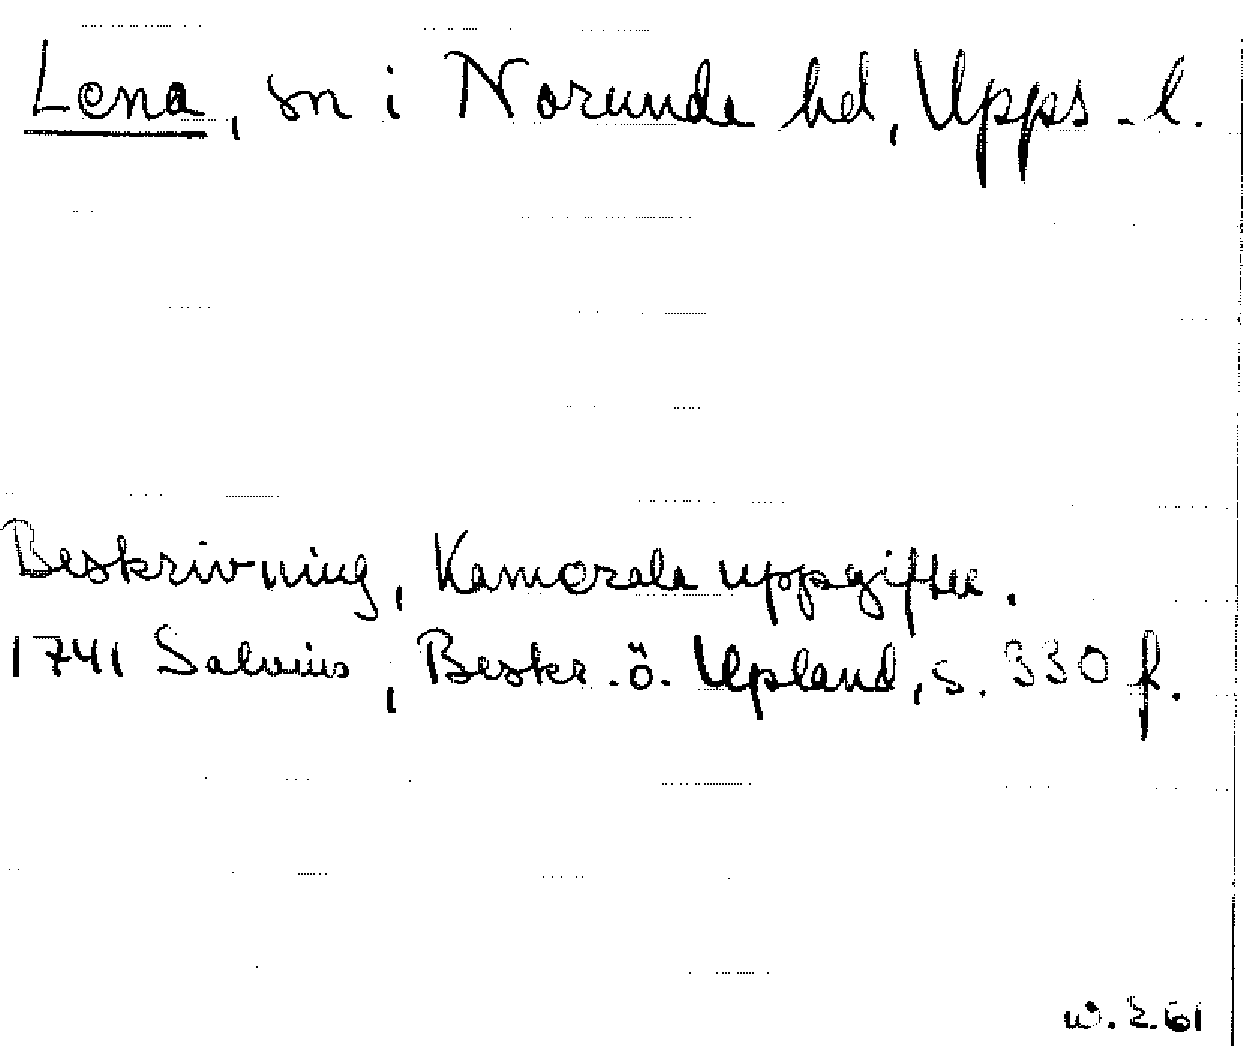 Lena, sn i Norunda hd, Upps. l.
Beskrivning, Kamerala uppgifter.
1741 Salvius, Beskr. ö. Upland, s. 330 f.
W. 2.61